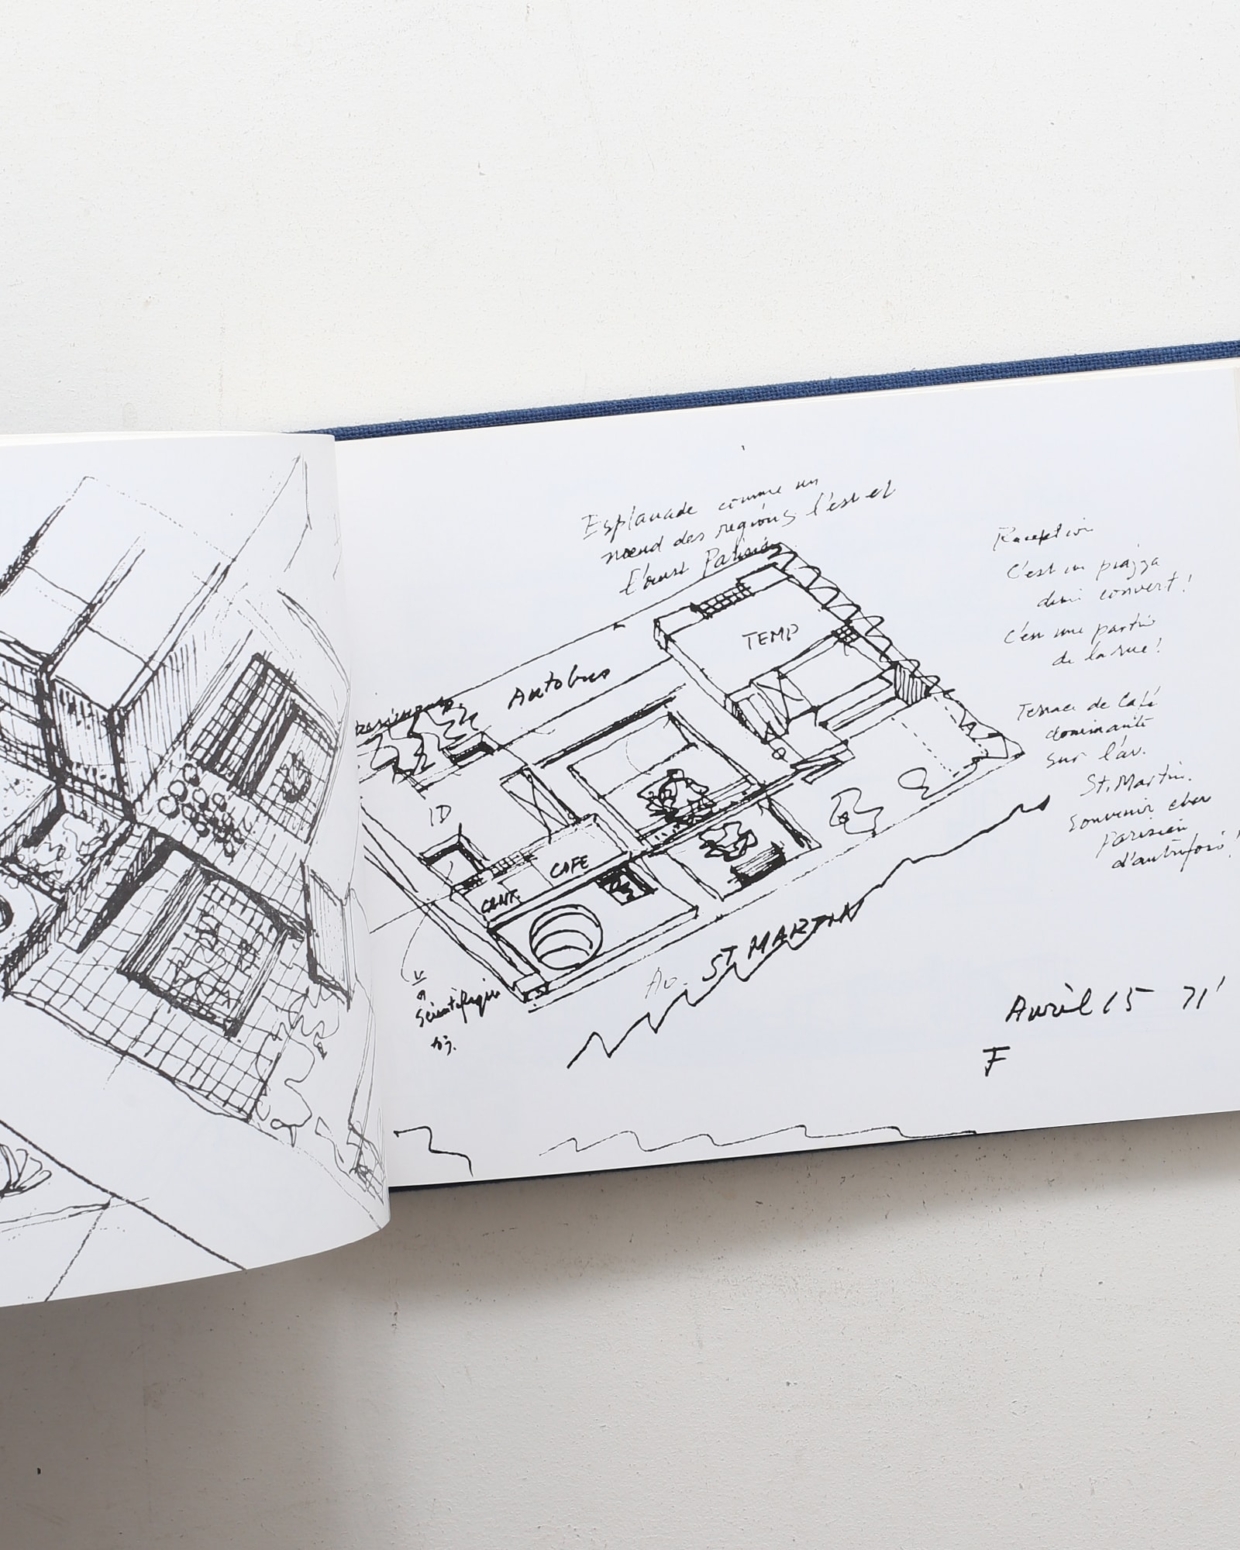 Esplanade comme un
nœud des regións l'est et
l'ouest Parisién
Autobus
TEMP
ID
CAFE
CENT.
Av. ST MARTIN
Scientifique
Reception
C'est un piazza
demi convert!
C'en une partie
de la rue!
Terrace de Café
dominante
sur l'av.
St. Martin.
Souvenir cher
Parisien
Avril 15 71'
F